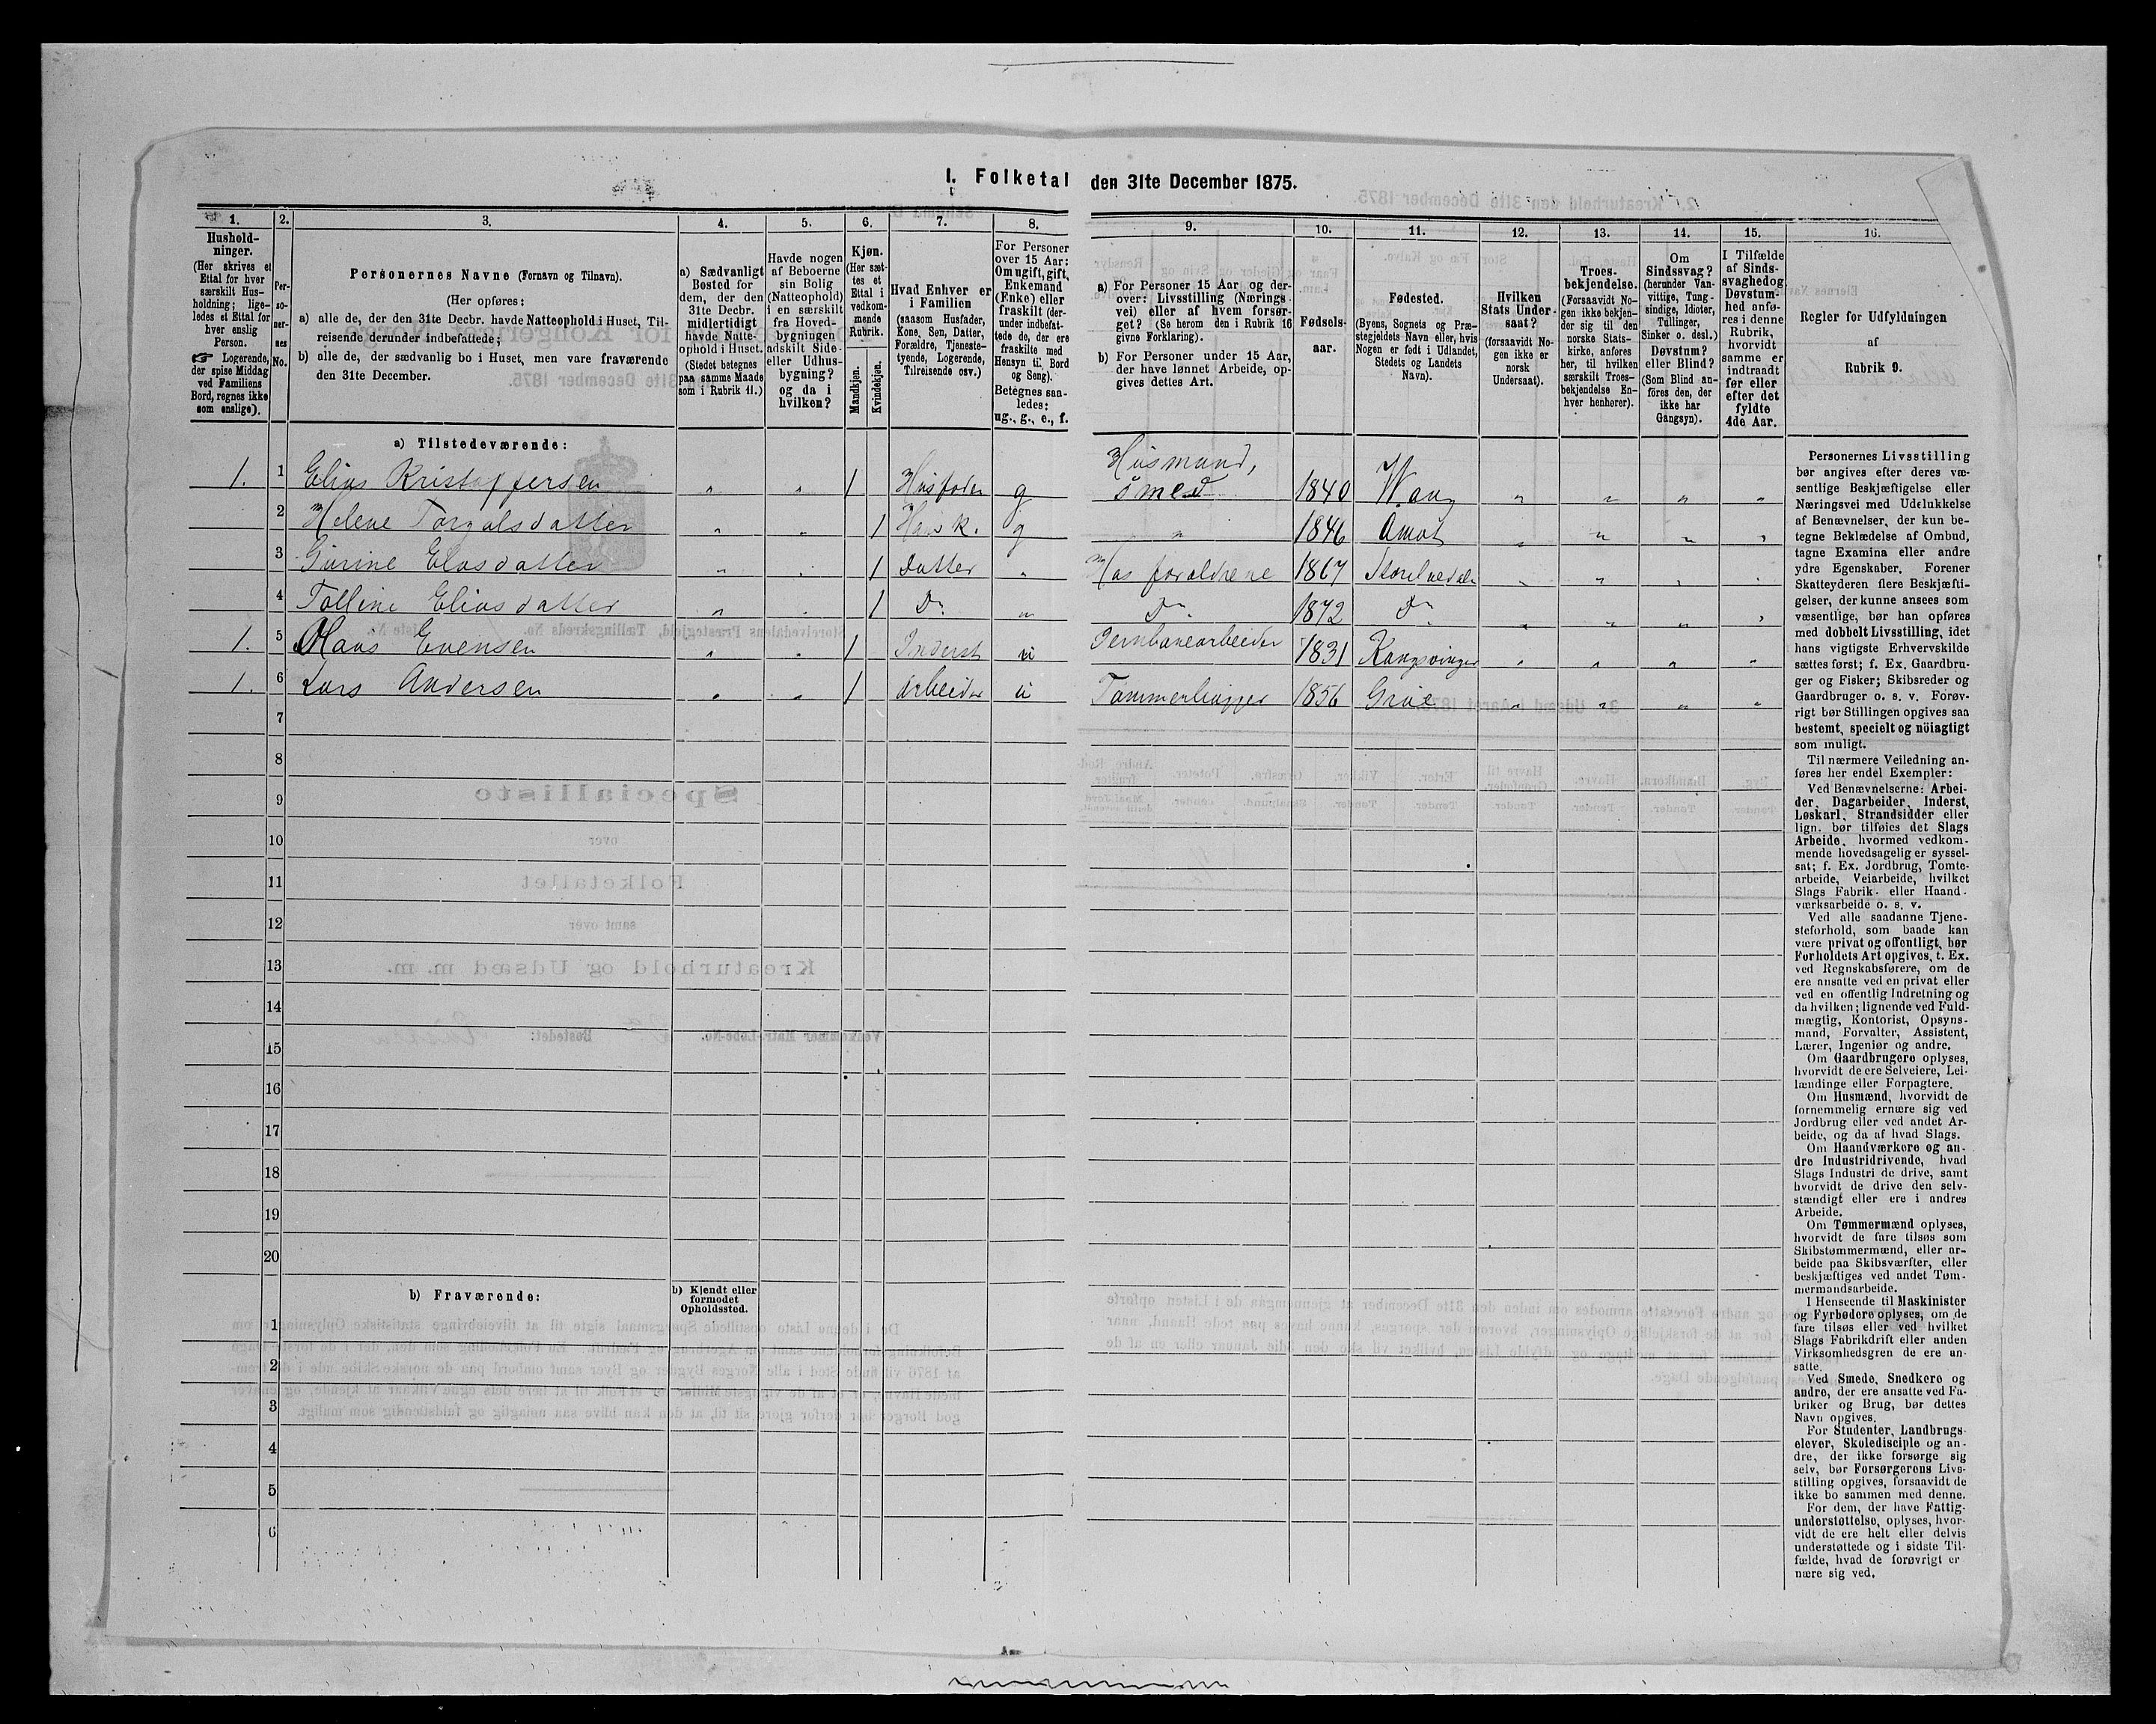 I. Folketal den 31te December 1875.
1. 2. 3. 4. 5. 6. 7. 8. 9. 10. 11. 12. 13. 14. 15. 16.
Hushold-
ninger.
(Her skrives et
Ettal for hver
særskilt Hus-
holdning; lige-
ledes et Ettal for
hver enslig
Person.
☞ Logerende,
der spise Middag
ved Familiens
Bord, regnes ikke
som enslige).
Per-
so-
ner-
nes
No.
Personernes Navne (Fornavn og Tilnavn).
(Her opføres:
a) alle de, der den 31te Decbr. havde Natteophold i Huset, Til-
reisende derunder indbefattede;
b) alle de, der sædvanlig bo i Huset, men vare fraværende
den 31te December.
a) Sædvanligt
Bosted for
dem, der den
31te Decbr.
midlertidigt
havde Natte-
ophold i Huset.
(Stedet betegnes
paa samme Maade
som i Rubrik 11.)
Havde nogen
af Beboerne
sin Bolig
(Natteophold)
i en særskilt
fra Hoved-
bygningen
adskilt Side-
eller Udhus-
bygning?
og da i
hvilken?
Kjøn.
(Her sæt-
tes et
Ettal i
vedkom-
mende
Rubrik.
Mandkjøn.
Kvindekjøn.
Hvad Enhver er
i Familien
(saasom Husfader,
Kone, Søn, Datter,
Forældre, Tjeneste-
tyende, Logerende,
Tilreisende osv.)
For Personer
over 15 Aar:
Om ugift, gift,
Enkemand
(Enke) eller
fraskilt (der-
under indbefat-
tede de, der ere
fraskilte med
Hensyn til Bord
og Seng).
Betegnes saa-
ledes:
ug., g., e., f.
a) For Personer 15 Aar og der-
over: Livsstilling (Nærings-
vei) eller af hvem forsør-
get? (Se herom den i Rubrik 16
givne Forklaring).
b) For Personer under 15 Aar,
der have lønnet Arbeide, op-
gives dettes Art.
Fødsels-
aar.
Fødested.
(Byens, Sognets og Præ-
stegjeldets Navn eller, hvis
Nogen er født i Udlandet,
Stedets og Landets
Navn).
Hvilken
Stats Under-
saat?
(forsaavidt No-
gen ikke er
norsk
Undersaat).
Troes-
bekjendelse.
(Forsaavidt No-
gen ikke bekjen-
der sig til den
norske Stats-
kirke, anføres
her, til hvilken
særskilt Troes-
bekjendelse En-
hver henhører).
Om
Sindssvag?
(herunder Van-
vittige, Tung-
sindige, Idioter,
Tullinger,
Sinker o. desl.)
Døvstum?
eller Blind?
(Som Blind an-
föres den, der
ikke har
Gangsyn).
I Tilfælde
af Sinds-
svaghed og
Døvstum-
hed anfø-
res i denne
Rubrik,
hvorvidt
samme er
indtraadt
før eller
efter det
fyldte
4de Aar.
Regler for Udfyldningen
af
Rubrik 9.
a) Tilstedeværende:
1. 1 Elias Kristoffersen " " 1 Husfader g Husmand,
Smed 1840 Wang " " " "
2 Helene Torgalsdatter " " 1 Hans K. g " 1846 Åmot " " " "
3 Gurine Eliasdatter " " 1 Datter " Hos foraldrene 1867 Storelvedalen " " " "
4 Tolline Eliasdatter " " 1 Do " Do 1872 Do " " " "
1. 5 Hans Evensen " " 1 Inderst u Jernbanearbeider 1831 Kongsvinger " " " "
1. 6 Lars Andersen " " 1 Arbeider u Tømmerhugger 1856 Grue " " " "
7
8
9
10
11
12
13
14
15
16
17
18
19
20
b) Fraværende:
b) Kjendt eller
formodet
Opholdssted.
1
2
3
4
5
6
Personernes Livsstilling
bør angives efter deres væ-
sentlige Beskjæftigelse eller
Næringsvei med Udelukkelse
af Benævnelser, der kun be-
tegne Beklædelse af Ombud,
tagne Examina eller andre
ydre Egenskaber. Forener
Skatteyderen flere Beskjæfti-
gelser, der kunne ansees som
væsentlige, bør han opføres
med dobbelt Livsstilling, idet
hans vigtigste Erhvervskilde
sættes først; f. Ex. Gaardbru-
ger og Fisker; Skibsreder og
Gaardbruger o. s. v. Forøv-
rigt bør Stillingen opgives saa
bestemt, specielt og nöiagtigt
som muligt.
Til nærmere Veiledning an-
føres her endel Exempler:
Ved Benævnelserne: Arbei-
der, Dagarbeider, Inderst,
Løskarl, Strandsidder eller
lign. bør tilføies det Slags
Arbeide, hvormed vedkom-
mende hovedsagelig er syssel-
sat; f. Ex. Jordbrug, Tomte-
arbeide, Veiarbeide, hvilket
Slags Fabrik- eller Haand-
værksarbeide o. s. v.
Ved alle saadanne Tjene-
steforhold, som baade kan
være privat og offentligt, bør
Forholdets Art opgives, t. Ex.
ved Regnskabsførere, om de
ere ansatte ved en privat eller
ved en offentlig Indretning og
da hvilken; lignende ved Fuld-
mægtig, Kontorist, Opsyns-
mand, Forvalter, Assistent,
Lærer, Ingeniør og andre.
Om Gaardbrugere oplyses,
hvorvidt de ere Selveiere, Lei-
lændinge eller Forpagtere.
Om Husmænd, hvorvidt de
fornemmelig ernære sig ved
Jordbrug eller ved andet Ar-
beide, og da af hvad Slags.
Om Haandværkere og an-
dre Industridrivende, hvad
Slags Industri de drive, samt
hvorvidt de drive den selv-
stændigt eller ere i andres
Arbeide.
Om Tømmermænd oplyses,
hvorvidt de fare tilsøs som
Skibstømmermænd, eller ar-
beide paa Skibsværfter, eller
beskjæftiges ved andet Tøm-
mermandsarbeide.
I Henseende til Maskinister
og Fyrbødere oplyses, om de
fare tilsøs eller ved hvilket
Slags Fabrikdrift eller anden
Virksomhedsgren de ere an-
satte.
Ved Smede, Snedkere og
andre, der ere ansatte ved Fa-
briker og Brug, bør dettes
Navn opgives.
For Studenter, Landbrugs-
elever, Skoledisciple og an-
dre, der ikke forsørge sig
selv, bør Forsørgerens Livs-
stilling opgives, forsaavidt de
ikke bo sammen med denne.
For dem, der have Fattig-
understøttelse, oplyses, hvor-
vidt de ere helt eller delvis
understøttede og i sidste Til-
fælde, hvad de forøvrigt er-
nære sig ved.